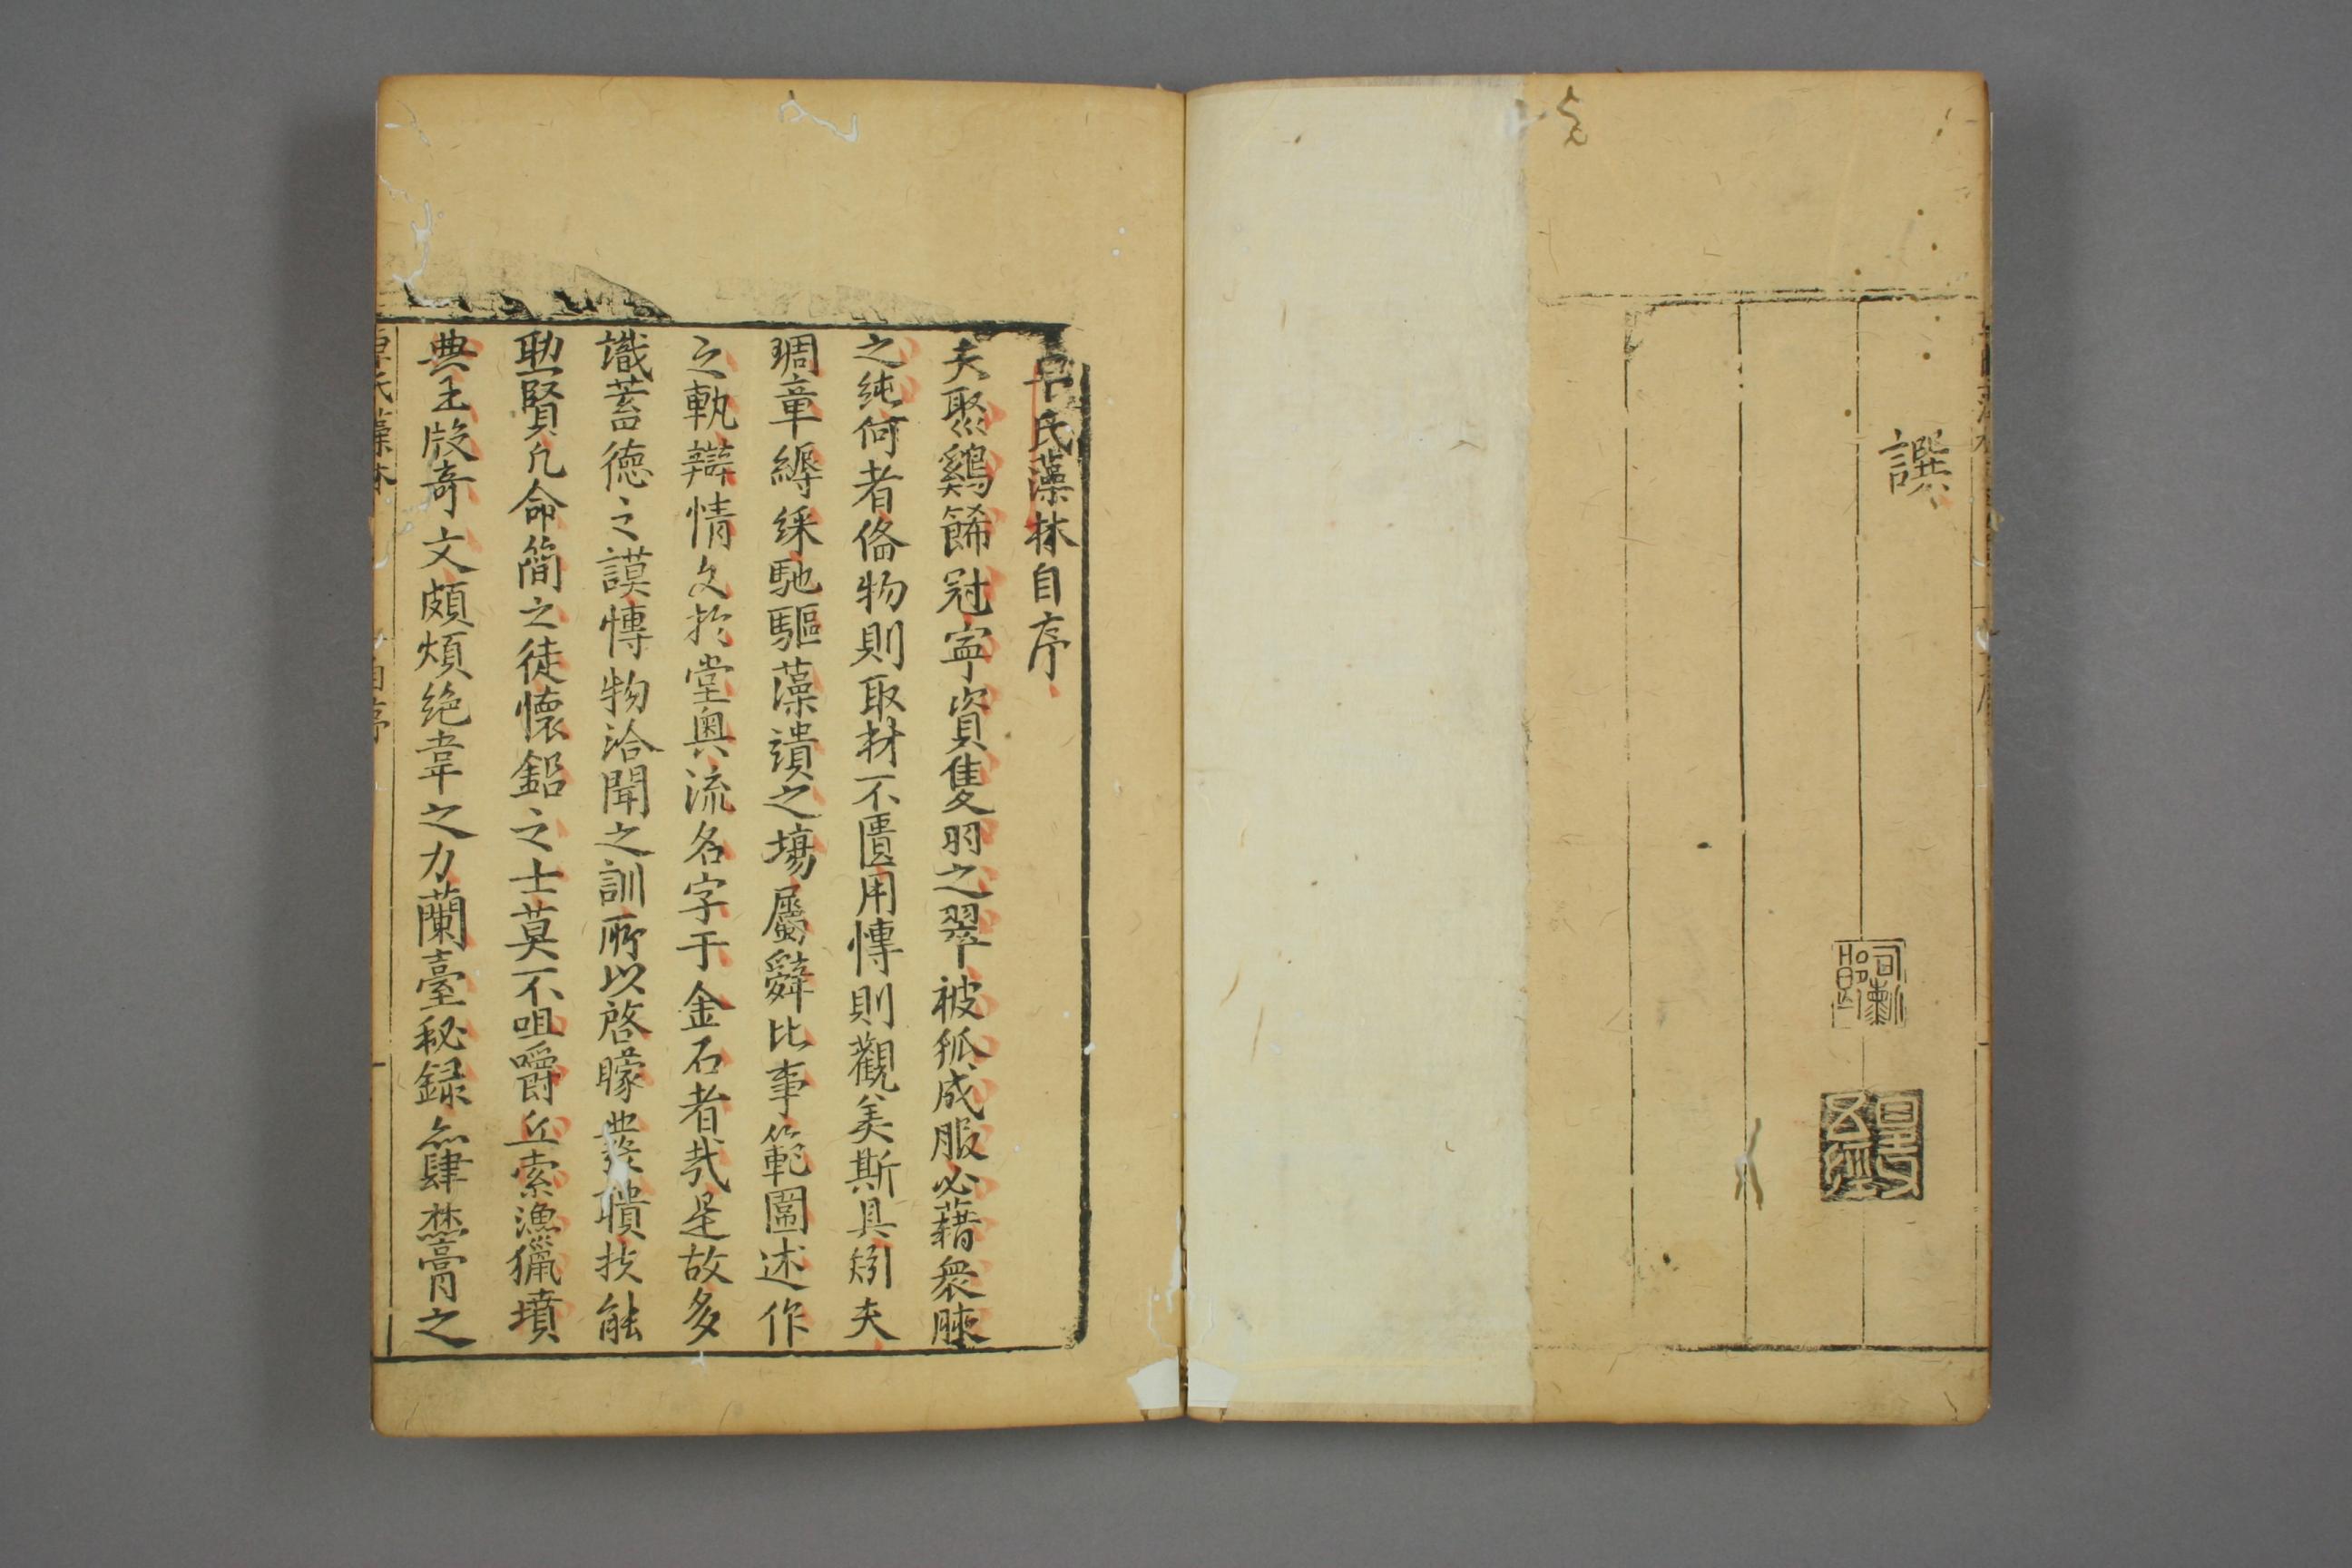 譔
氏藻林自序
夫聚鷄餙冠寧資隻羽之翠被狐成服必藉衆腋
之純何者俻物則取材不匱用愽則觀美斯具矧夫
琱章縟綵馳驅藻繢之塲屬辤比事範圍述作
之軌辯情文扵堂奥流名字于金石者㢤是故多
識蓄德之謨愽物洽聞之訓所以啓矇發聵扶能
助賢凡命簡之徒懷鉛之士莫不咀嚼丘索漁獵墳
典玉牒奇文頗煩絶韋之力蘭臺秘録無肆焚膏之